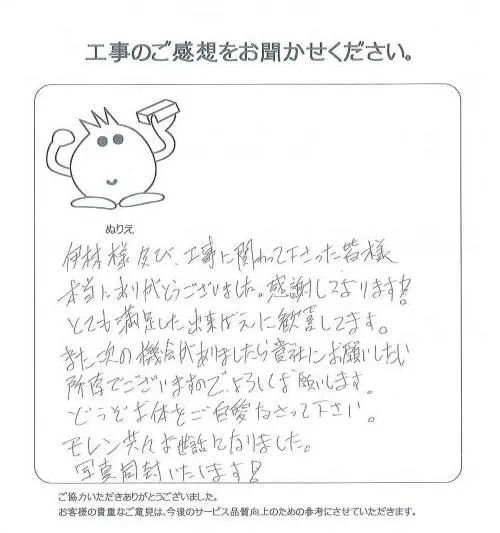 工事のご感想をお聞かせください。
ぬりえ
伊林様及び、工事に関わって下さった皆様
本当にありがとうございました。感謝しております!
とても満足した出来ばえに歓喜してます。
また次の機会がありましたら貴社にお願いしたい
所存でございますので、よろしくお願いします。
どうぞお体をご自愛なさって下さい。
モレン共々お世話になりました。
写真同封いたします!
ご協力いただきありがとうございました。
お客様の貴重なご意見は、今後のサービス品質向上のための参考にさせていただきます。